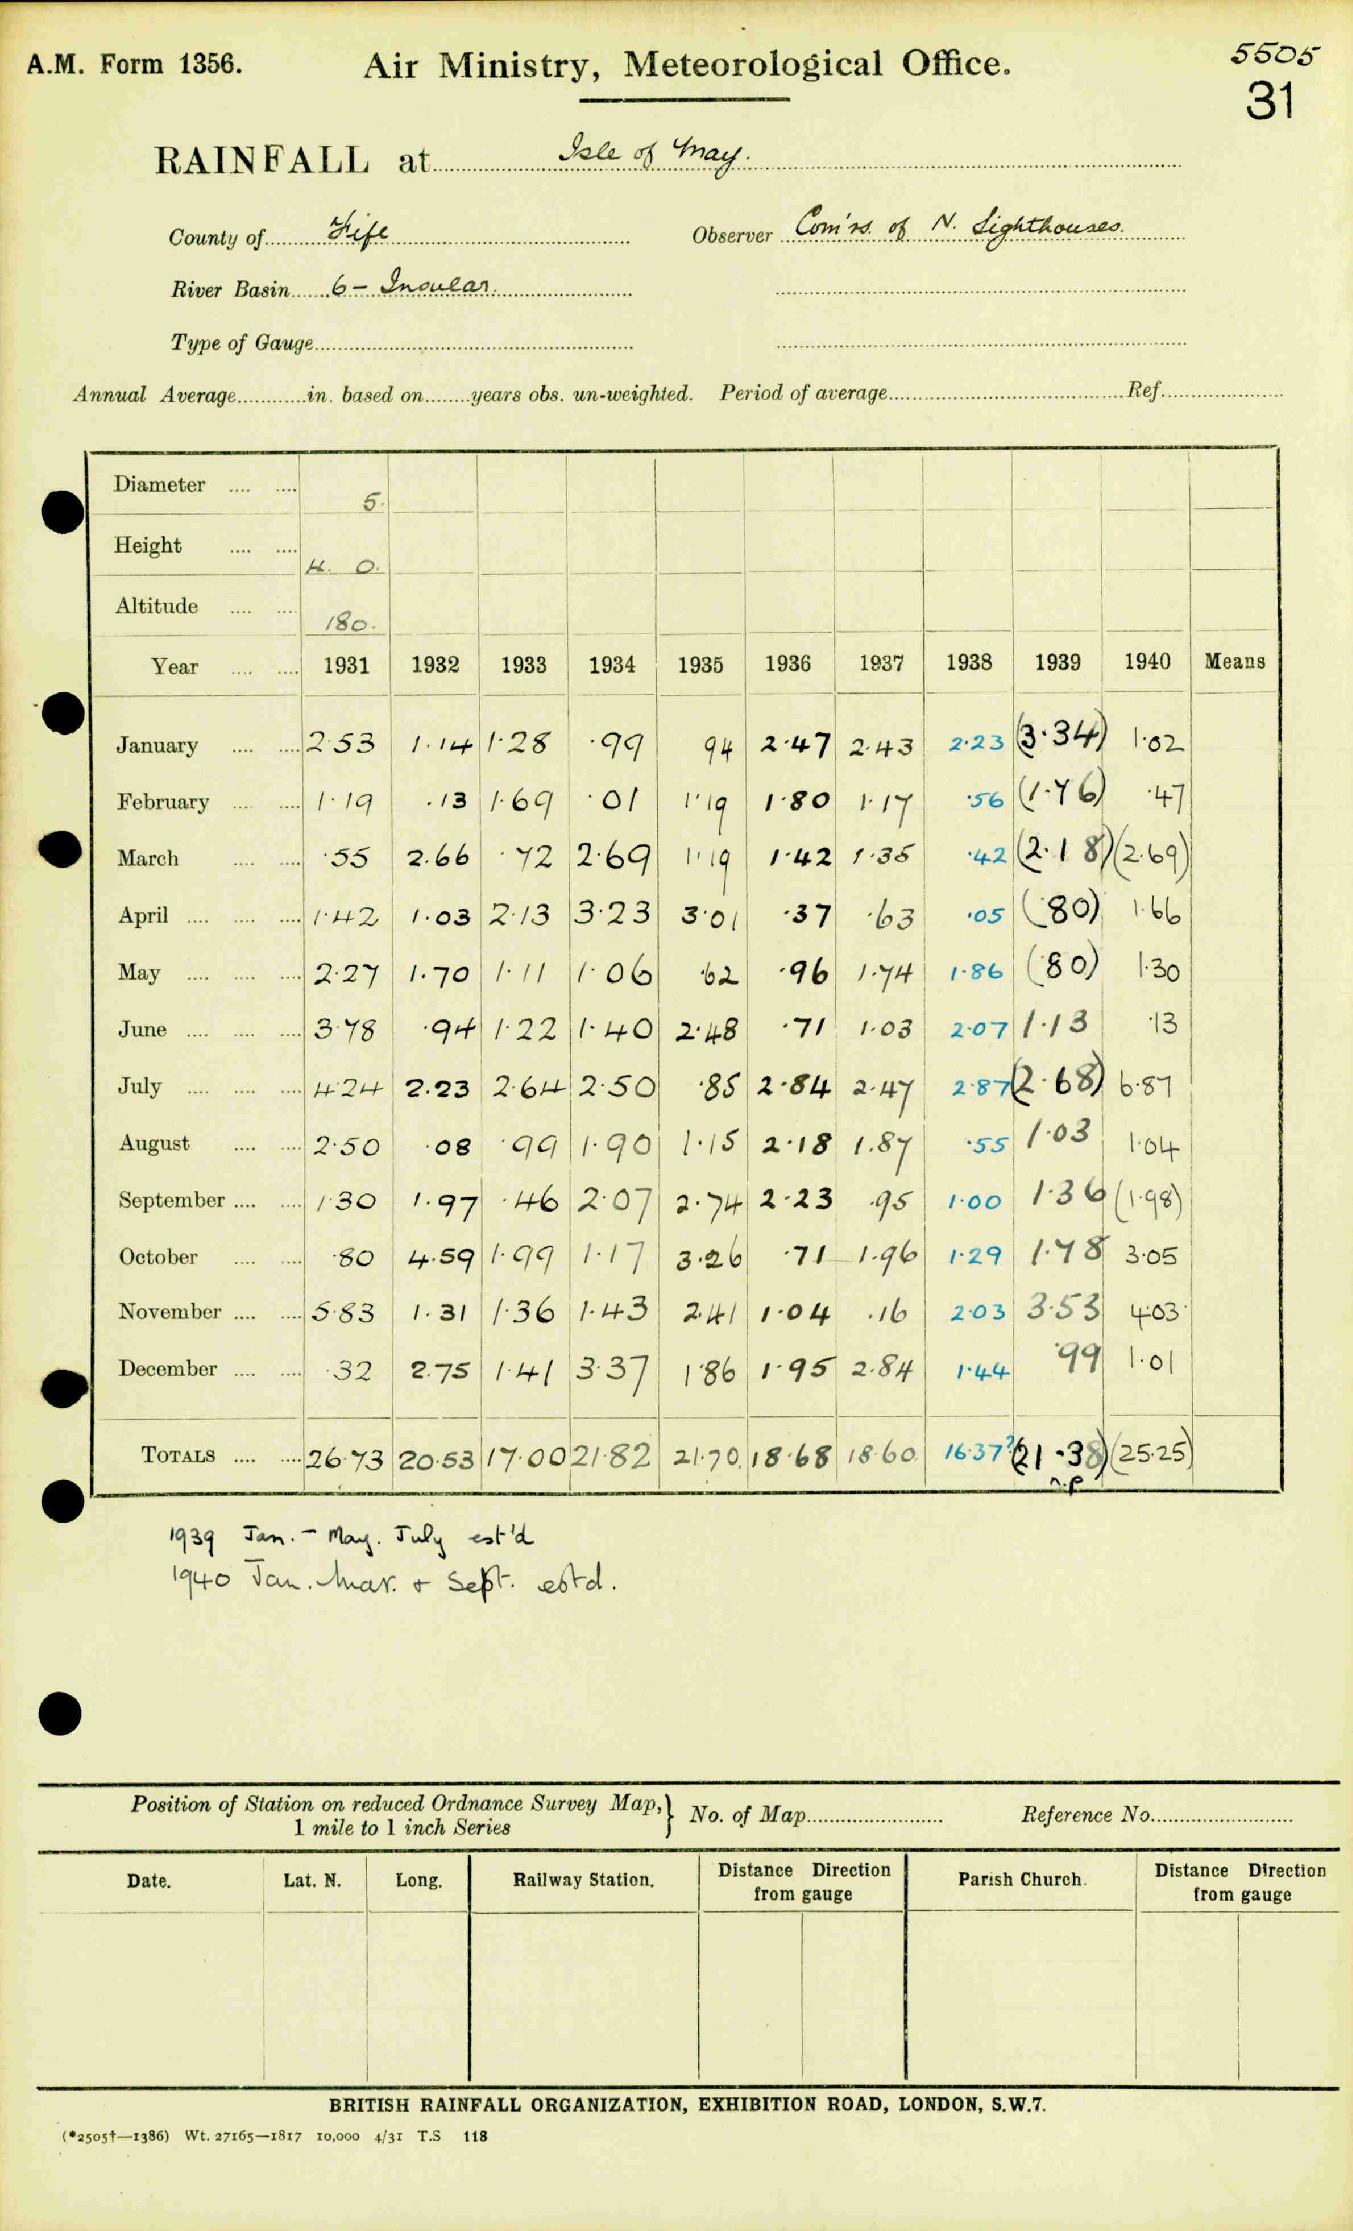 A.M. Form 1356.
Air Ministry, Meteorological Office.
5505
31
RAINFALL at Isle of May.
County of Fife Observer Com'rs. of N. Lighthouses.
River Basin 6 - Insular.
Type of Gauge
Annual Average in. based on years obs. un-weighted. Period of average Ref.
Diameter 5.
Height 4. 0.
Altitude 180.
Year 1931 1932 1933 1934 1935 1936 1937 1938 1939 1940 Means
January 2·53 1·14 1·28 ·99 94 2·47 2·43 2·23 (3·34) 1·02
February 1·19 ·13 1·69 ·01 1·19 1·80 1·17 ·56 (1·76) ·47
March ·55 2.66 ·72 2·69 1·19 1·42 1·35 ·42 (2·18) (2·69)
April 1·42 1·03 2·13 3·23 3·01 ·37 ·63 ·05 (·80) 1·66
May 2·27 1·70 1·11 1·06 ·62 ·96 1·74 1·86 (·80) 1·30
June 3·78 ·94 1·22 1·40 2·48 ·71 1·03 2·07 1·13 ·13
July 4·24 2·23 2·64 2·50 ·85 2·84 2·47 2·87 (2·68) 6·87
August 2·50 ·08 ·99 1·90 1·15 2·18 1·87 ·55 1·03 1·04
September 1·30 1·97 ·46 2·07 2·74 2·23 ·95 1·00 1·36 (1·98)
October ·80 4·59 1·99 1·17 3·26 ·71 1·96 1·29 1·78 3·05
November 5·83 1·31 1·36 1·43 2·41 1·04 ·16 2·03 3·53 4·03
December ·32 2·75 1·41 3·37 1·86 1·95 2·84 1·44 ·99 1·01
TOTALS 26·73 20·53 17·00 21·82 21·70 18·68 18·60 16·37? (21·38) (25·25)
n.p
1939 Jan. - May. July est'd
1940 Jan. Mar. + Sept. estd.
Position of Station on reduced Ordnance Survey Map,} No. of Map Reference No.
1 mile to 1 inch Series
Date. Lat. N. Long. Railway Station. Distance Direction from gauge Parish Church. Distance Direction from gauge
BRITISH RAINFALL ORGANIZATION, EXHIBITION ROAD, LONDON, S.W.7.
(*2505†—1386) Wt. 27165—1817 10,000 4/31 T.S 118